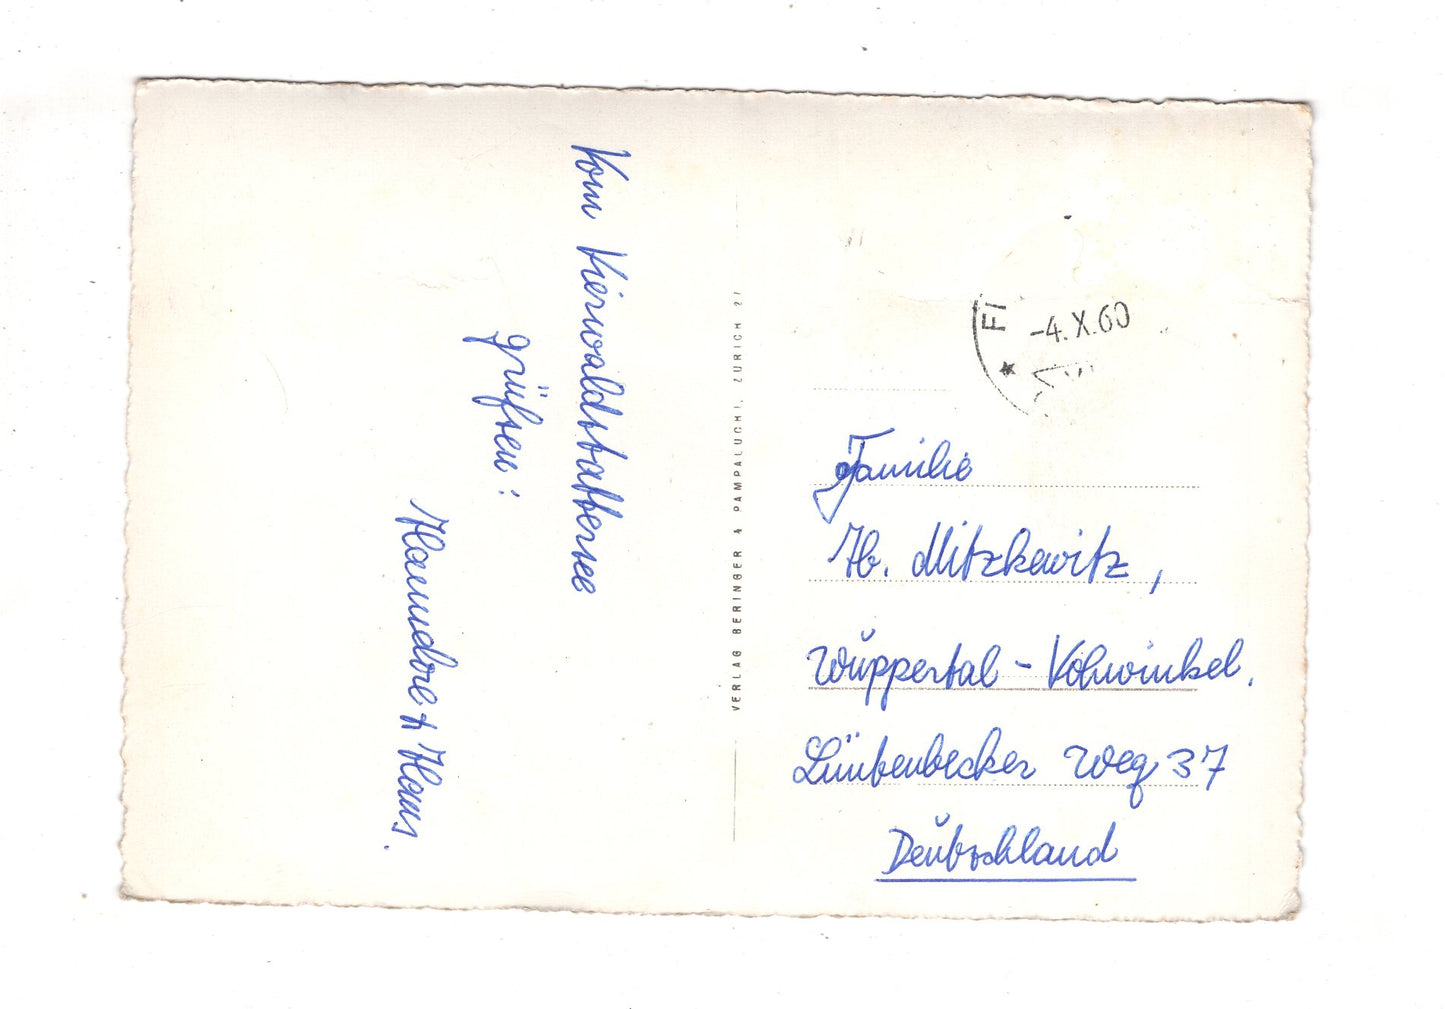 Vom Vierwaldstättersee
grüßen:
Hannelore + Hans.
VERLAG BERINGER & PAMPALUCHI, ZÜRICH 2/
FI
-4.X.60
Familie
H. Mitzkewitz,
Wuppertal - Vohwinkel.
Weg 37
Deutschland